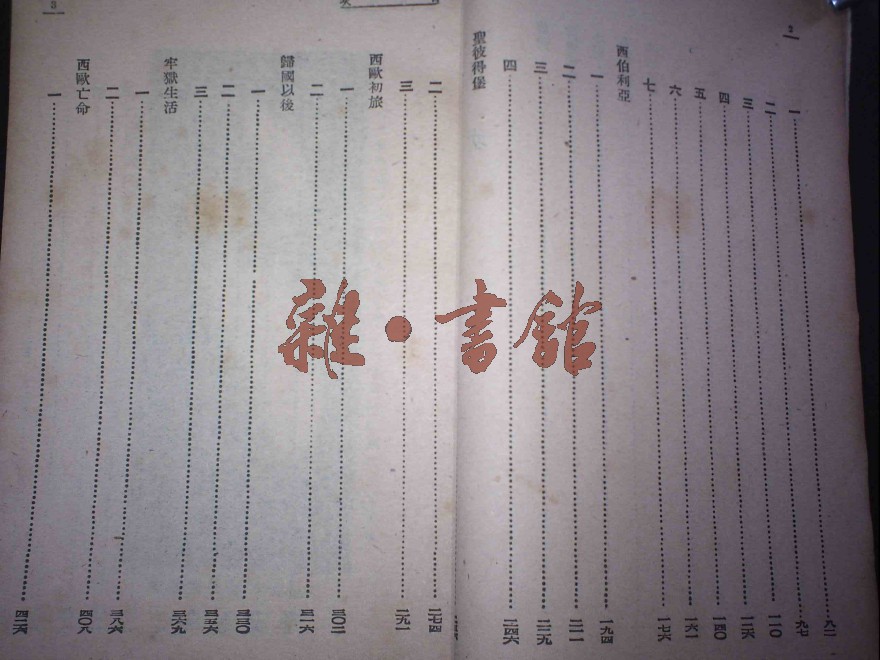 2
一……八二
二……九七
三……一一〇
四……一二六
五……一四〇
六……一六一
七……一七六
西伯利亞
一……一九四
二……二一一
三……二二九
四……二四六
聖彼得堡
二……二七四
三……二九一
西歐初旅
一……三〇二
二……三一六
歸國以後
一……三三〇
二……三五六
三……三六九
牢獄生活
一……三八六
二……四〇八
西歐亡命
一……四二六
3
雜·書館